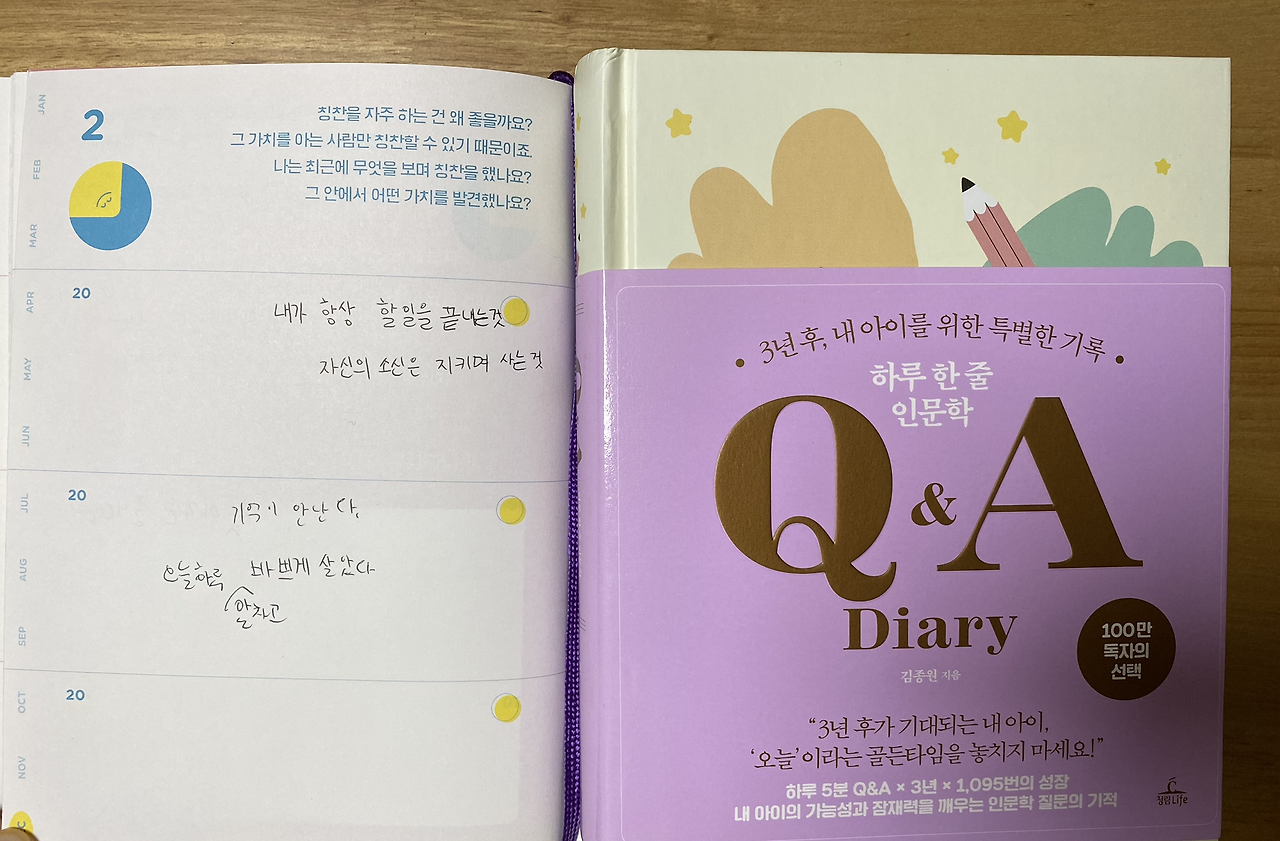 JAN
FEB
MAR
APR
MAY
JUN
JUL
AUG
SEP
OCT
NOV
C
2
칭찬을 자주 하는 건 왜 좋을까요?
그 가치를 아는 사람만 칭찬할 수 있기 때문이죠.
나는 최근에 무엇을 보며 칭찬을 했나요?
그 안에서 어떤 가치를 발견했나요?
20
내가 항상 할일을 끝내는것
자신의 소신은 지키며 사는것
20
기억이 안난다.
오늘하루 바쁘게 살았다
알차고
20
3년 후, 내 아이를 위한 특별한 기록
하루 한 줄
인문학
Q & A
Diary
김종원 지음
100만
독자의
선택
“3년 후가 기대되는 내 아이,
‘오늘’이라는 골든타임을 놓치지 마세요!”
하루 5분 Q&A × 3년 × 1,095번의 성장
내 아이의 가능성과 잠재력을 깨우는 인문학 질문의 기적
청림Life